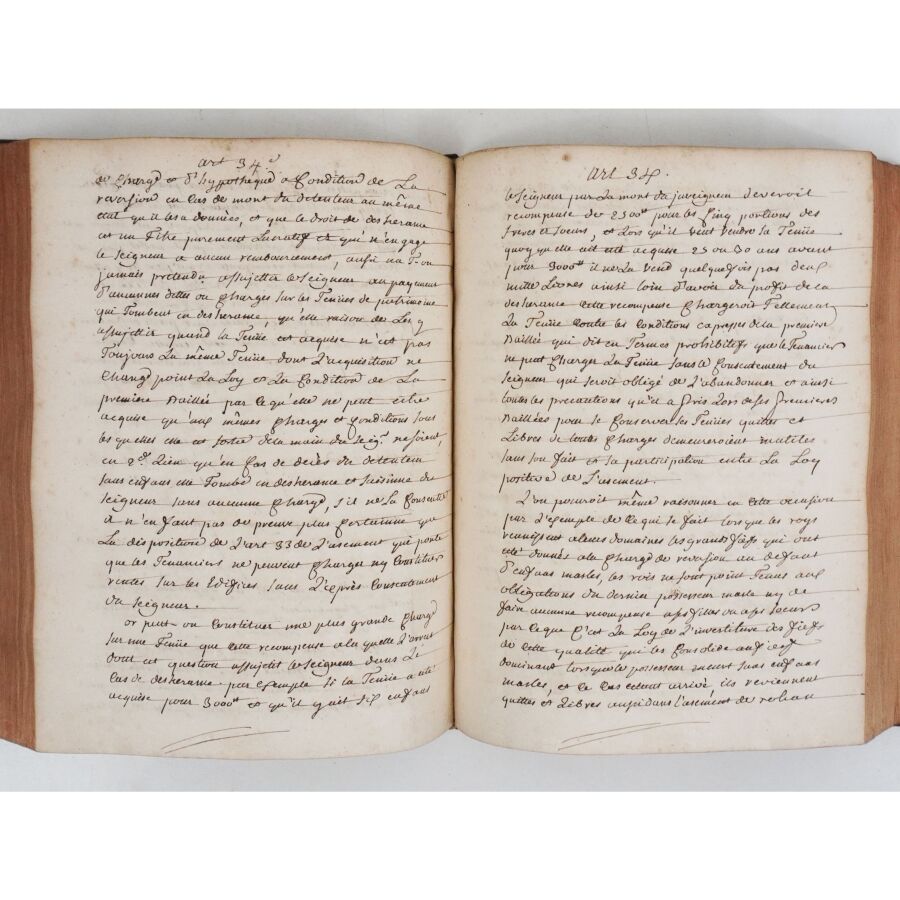 art 34e
de charge et d'hypotheque a Condition de La
reversion en Cas de mort du detenteur au même
etat qu'il les a donnees, et que le droit de desherance
est un titre purement Lucratif et qui n'engage
le seigneur a aucun remboursement, aussi na t-on
jamais pretendu assujettir le seigneur au payement
d'aucunnes dettes ou Charges sur les Tenües de patrimoine
qui Tombent en desherance, qu'elle raison de Les y
assujettir quand la Tenüe est acquise n'est pas
Toujours La même Tenüe dont L'acquisition ne
Change point La Loy et La Condition de La
premiere Baillée par ce qu'elle ne peut etre
acquise qu'aux mêmes Charges et Conditions sous
les quelles elle est sortie de la main du seigr
en Bien qu'en Cas de deces du detenteur
sans enfans elle Tombe en desherance et saisinne du
seigneur sans aucunne Charge, s'il ne La Consentie
il n'en faut pas de preuve plus Certainne que
La disposition de L'art 33 de L'usement qui porte
que les Tenanciers ne peuvent Charger ny Constituer
rentes sur les Edifices sans L'exprès Consentement
du seigneur.
or peut on Constituer une plus grande Charge
sur une Tenüe que cette recompense a la quelle L'on
dont est question assujetit le seigneur dans Le
Cas de desherance. par Exemple si la Tenüe a eté
acquise pour 3000tt et qu'il y ait six enfans
art 34.
le seigneur par La mort du juveigneur devroit
recompense de 2500tt pour les Cinq portions des
freres et soeurs, et Lors qu'il veut vendre sa Tenüe
quoy qu'elle ait eté acquise 25 ou 30 ans avant
pour 3000tt il ne La vend quelques fois pas deux
mille Livres ainsi loin d'avoir du profit de la
desherance cette recompense Chargeroit Tellement
La Tenüe Contre les Conditions expresses de la premiere
Baillée qui dit en Termes prohibitifs que le Tenancier
ne peut Charger La Tenüe sans le Consentement du
seigneur qui seroit obligé de L'abandonner et ainsi
toutes les precautions qu'il a pris Lors de ses premieres
Baillées pour se Conserver ses Tenües quittes et
Libres de toutes Charges demeureroient inutiles
sans son fait et sa participation contre La Loy
positive de L'usement.
L'on pouroit même raisonner en Cette occasion
par L'exemple de Ce qui se fait lorsque les roys
reunissent a leurs domaines les grands fiefs qui ont
eté donnés a la Charge de reversion au deffaut
d'enfans masles, les rois ne sont point Tenus aux
obligations du dernier possesseur masle ny de
faire aucunne recompense a ses filles ou a ses soeurs
par Ceque C'est La Loy de L'investiture des fiefs
de Cette qualité qui les Consolide au
dominant lorsque le possesseur meurt sans enfans
masles, et le Cas etant arrivé, ils reviennent
quittes et Libres aussi dans l'usement de rohan